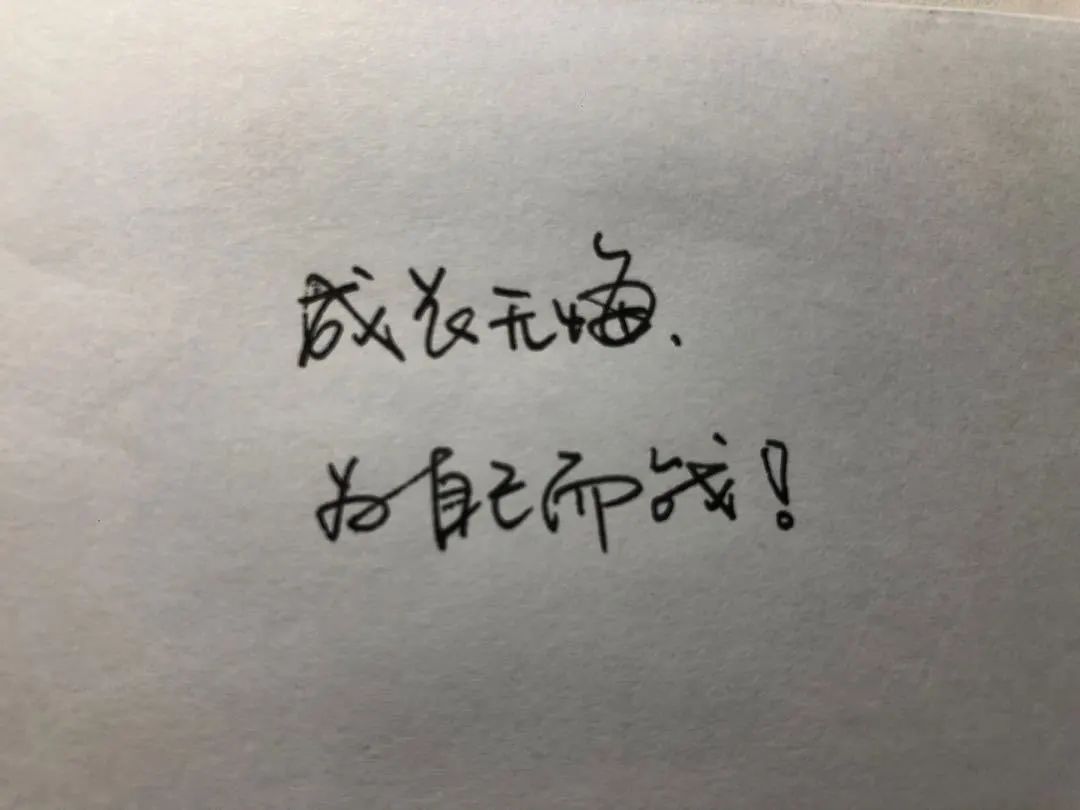 成长无悔.
为自己而战!